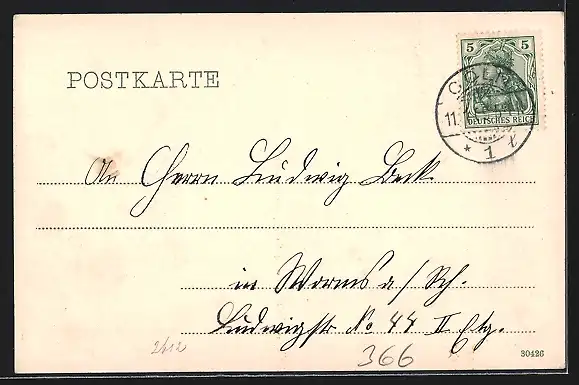 POSTKARTE
5 5
DEUTSCHES REICH
CÖLN
11.
* 1 t
An Herrn Ludwig Beck
in Worms a/Rh.
Ludwigstr No 44 II Etg.
2412
366
30426